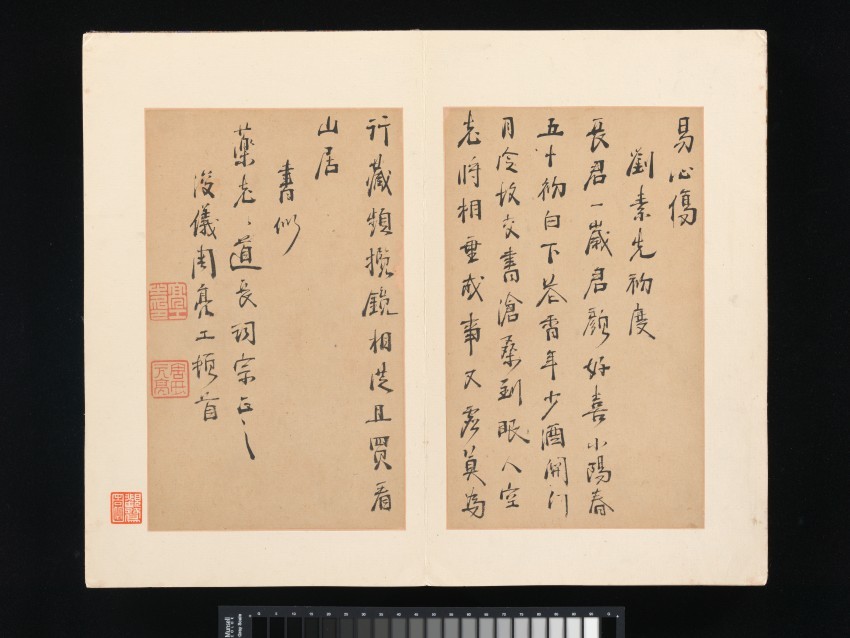 易心傷
劉素先初度
長君一歲君顏好喜小陽春
五十初白下花香年少酒開門
月冷故交書滄桑到眼人空
老將相垂成事又虛莫為
行藏頻攬鏡相從且買看
山居
書似
藥老〻道長詞宗正之
浚儀周亮工頓首
周亮